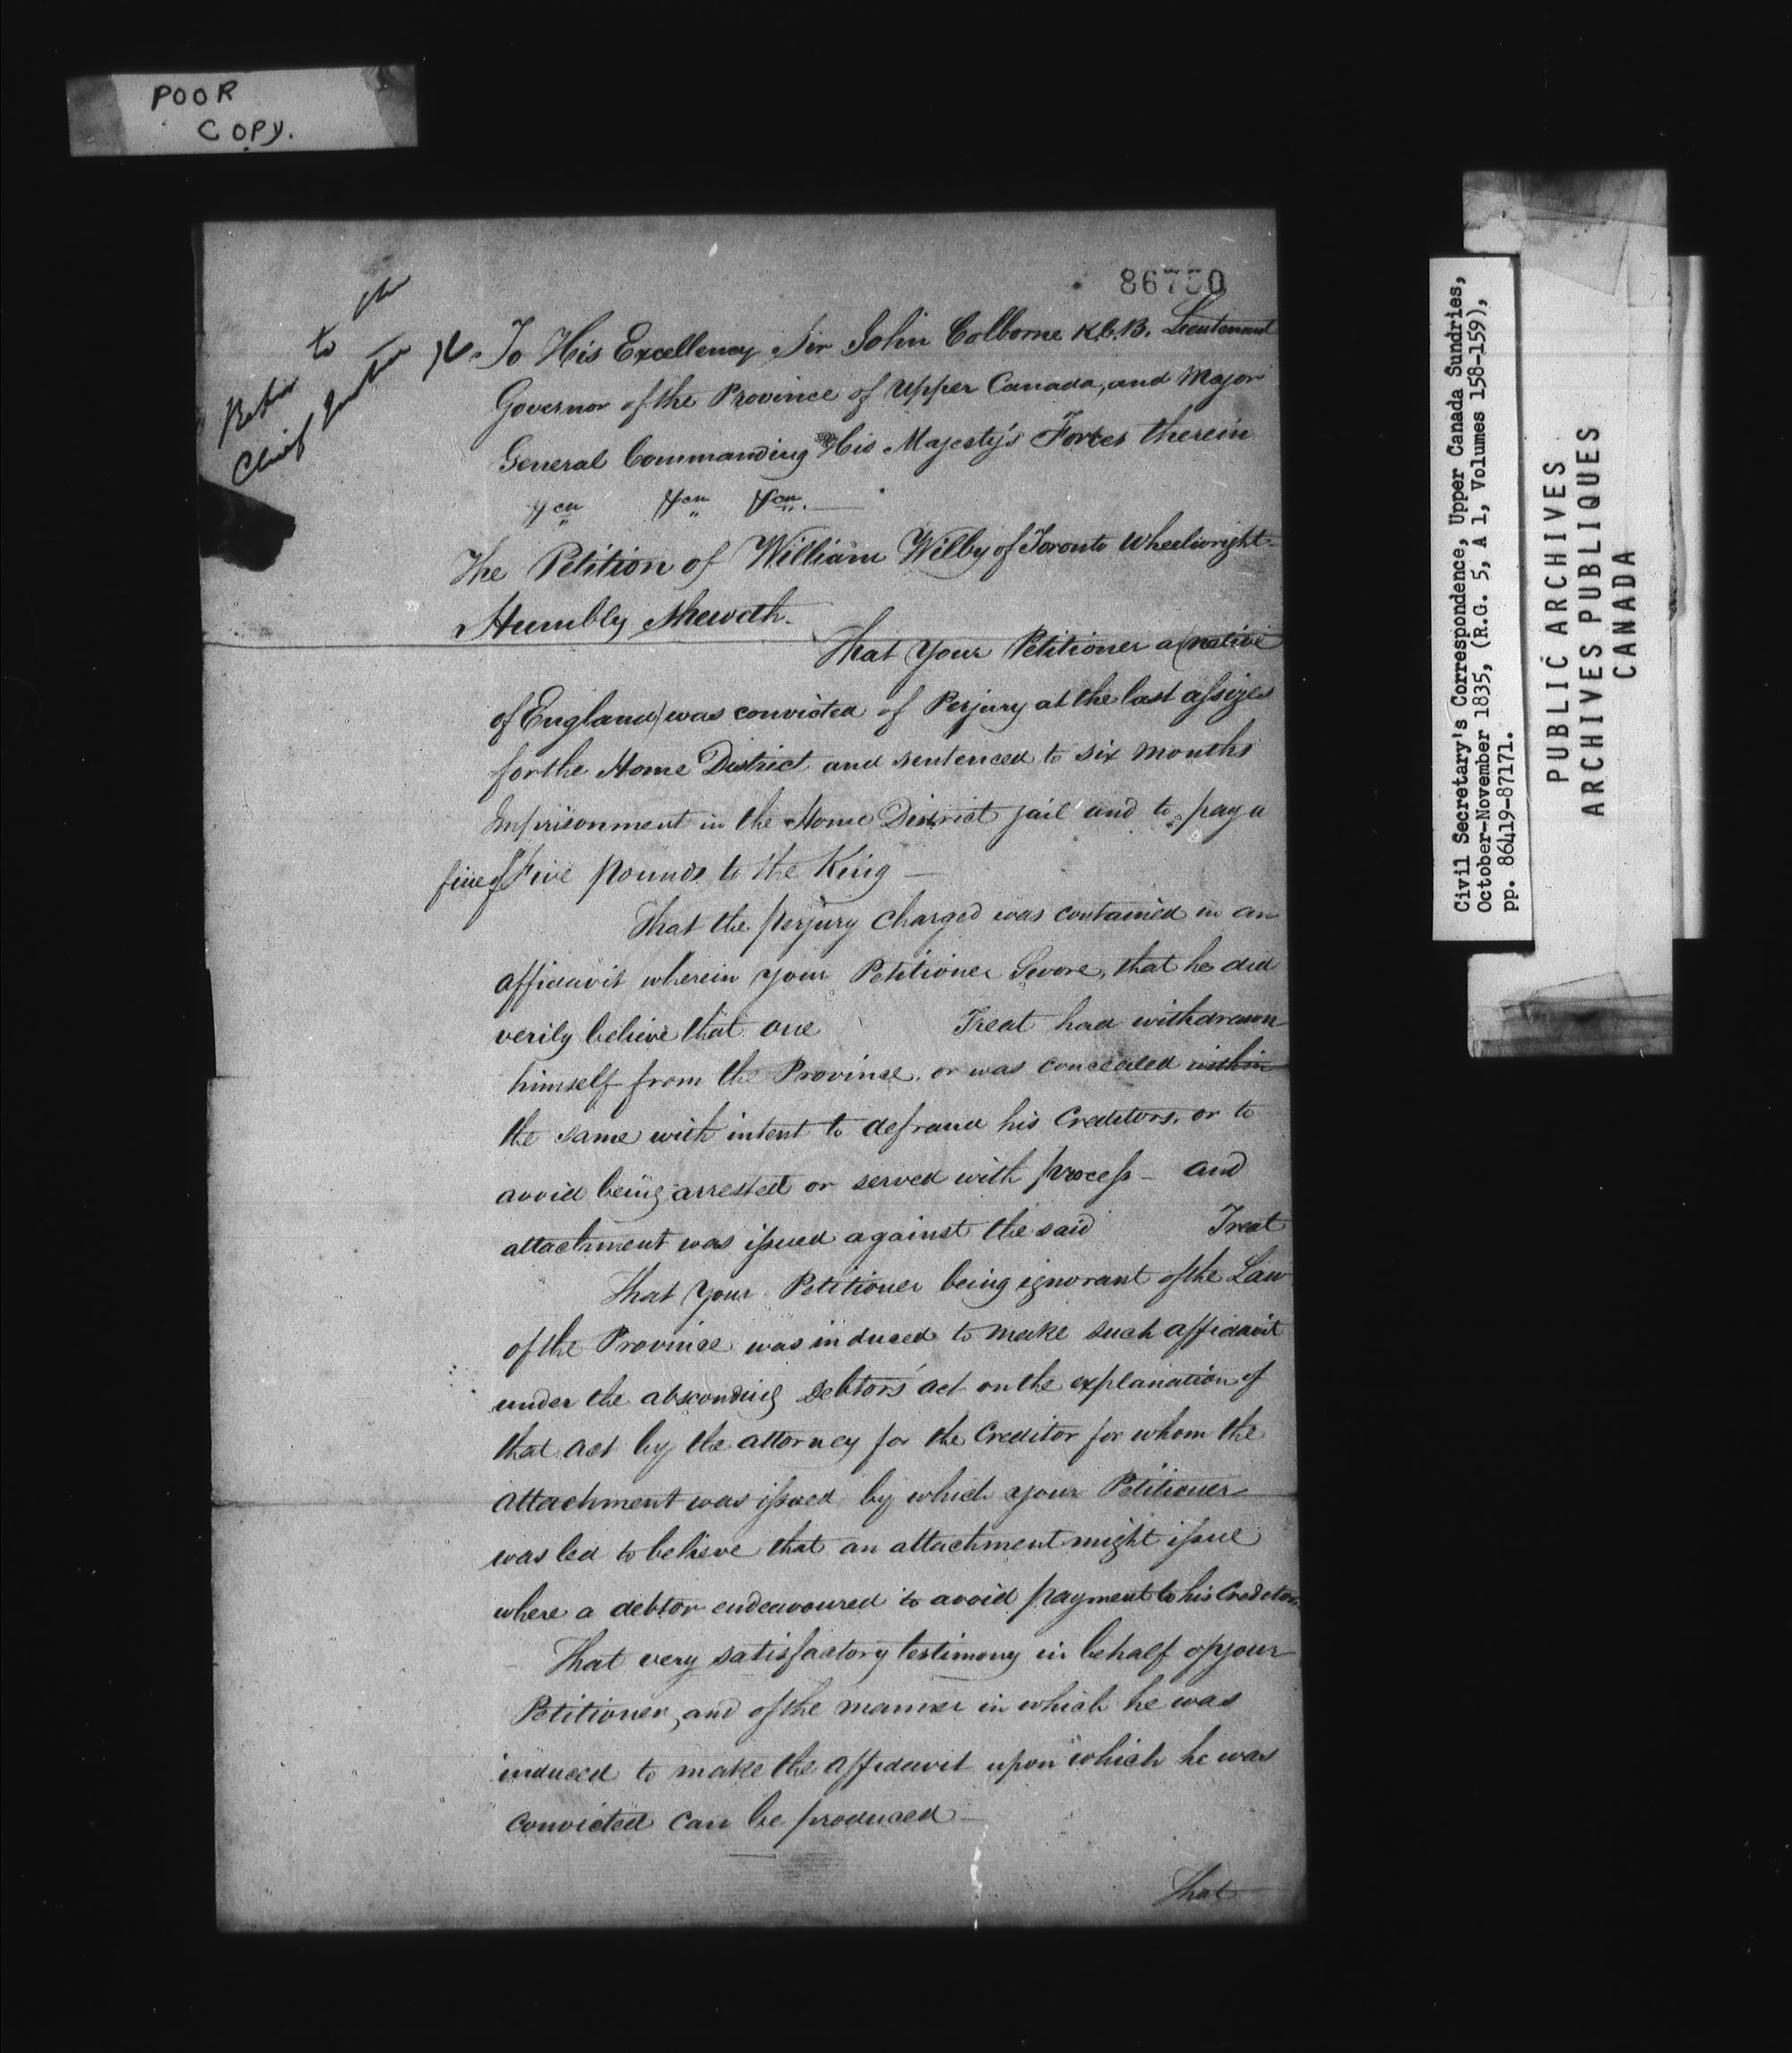 POOR
COPY.
86750
Refer to the
Chief Justice
To His Excellency Sir John Colborne K.C.B. Lieutenant
Governor of the Province of Upper Canada, and Major
General Commanding His Majesty's Forces therein
&ca &ca &ca.
The Petition of William Wilby of Toronto Wheelwright
Humbly Sheweth.
That Your Petitioner a (native
of England) was convicted of Perjury at the last assizes
for the Home District and sentenced to six months
Imprisonment in the Home District jail and to pay a
fine of Five pounds to the King —
That the perjury charged was contained in an
affidavit wherein your Petitioner Swore, that he did
verily believe that one Treat had withdrawn
himself from the Province, or was concealed within
the same with intent to defraud his Creditors, or to
avoid being arrested or served with process — and
attachment was issued against the said Treat
That your Petitioner being ignorant of the Law
of the Province was induced to make such affidavit
under the absconding Debtors' act on the explanation of
that act by the attorney for the Creditor for whom the
attachment was issued by which your Petitioner
was led to believe that an attachment might issue
where a debtor endeavoured to avoid payment to his Creditor.
That very satisfactory testimony in behalf of your
Petitioner, and of the manner in which he was
induced to make the affidavit upon which he was
convicted can be produced —
That
Civil Secretary's Correspondence, Upper Canada Sundries,
October-November 1835, (R.G. 5, A 1, Volumes 158-159),
pp. 86419-87171.
PUBLIC ARCHIVES
ARCHIVES PUBLIQUES
CANADA